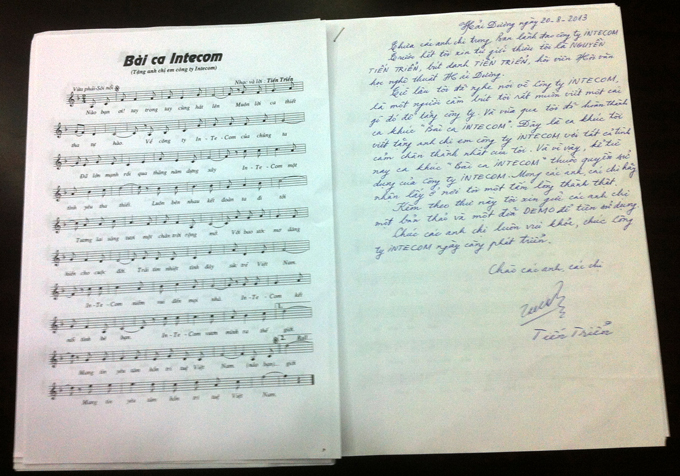 Bài ca Intecom
(Tặng anh chị em công ty Intecom)
Vừa phải-Sôi nổi
Nhạc và lời : Tiến Triển
Nào bạn ơi! tay trong tay cùng hát lên Muôn lời ca thiết
tha tự hào. Về công ty In - Te - Com của chúng ta
Đã lớn mạnh rồi qua tháng năm dựng xây In - Te - Com một
tình yêu tha thiết. Luôn bên nhau kết đoàn ta đi tới
Tương lai sáng tươi một chân trời rộng mở. Với bao ước mơ dâng
hiến cho cuộc đời. Trái tim nhiệt tình đầy sức trẻ Việt Nam.
In - Te - Com niềm vui đến mọi nhà. In - Te - Com kết
nối tình bè bạn. In - Te - Com vươn mình ra thế giới.
Mang tin yêu tâm hồn trí tuệ Việt Nam. (nào bạn).. giới
Mang tin yêu tâm hồn trí tuệ Việt Nam.
Hải Dương ngày 20-8-2013
Thưa các anh chị trong Ban lãnh đạo công ty INTECOM
Trước hết tôi xin tự giới thiệu tôi là NGUYỄN
TIẾN TRIỂN, bút danh TIẾN TRIỂN, hội viên Hội văn
học nghệ thuật Hải Dương.
lâu tôi đã nghe nói về Công ty INTECOM,
là một người cầm bút tôi rất muốn viết một cái
gì đó để tặng công ty. Và vừa qua tôi đã hoàn thành
ca khúc "Bài ca INTECOM". Đây là ca khúc tôi
viết tặng anh chị em công ty INTECOM với tất cả tình
cảm chân thành nhất của tôi. Và vì vậy, kể từ
nay ca khúc "Bài ca INTECOM" thuộc quyền sử
dụng của Công ty INTECOM. Mong các anh, các chị hãy
nhận lấy ở nơi tôi một tấm lòng thành thật.
Kèm theo thư này tôi xin gửi các anh chị
một bản thảo và một đĩa DEMO để tiện sử dụng
Chúc các anh chị luôn vui khỏe, chúc Công
ty INTECOM ngày càng phát triển.
Chào các anh, các chị
Tiến Triển